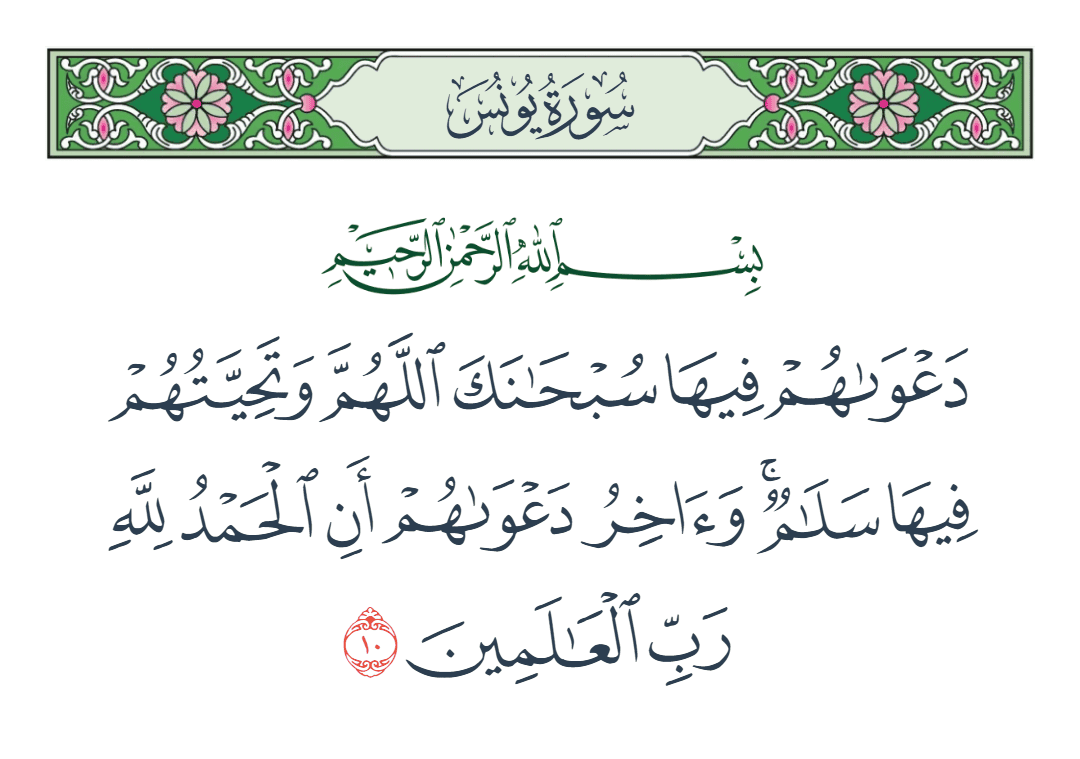 سُورَةُ يُونُسَ
بِسْمِ ٱللَّهِ ٱلرَّحْمَٰنِ ٱلرَّحِيمِ
دَعْوَىٰهُمْ فِيهَا سُبْحَـٰنَكَ ٱللَّهُمَّ وَتَحِيَّتُهُمْ
فِيهَا سَلَـٰمٌۭ ۚ وَءَاخِرُ دَعْوَىٰهُمْ أَنِ ٱلْحَمْدُ لِلَّهِ
رَبِّ ٱلْعَـٰلَمِينَ ١٠